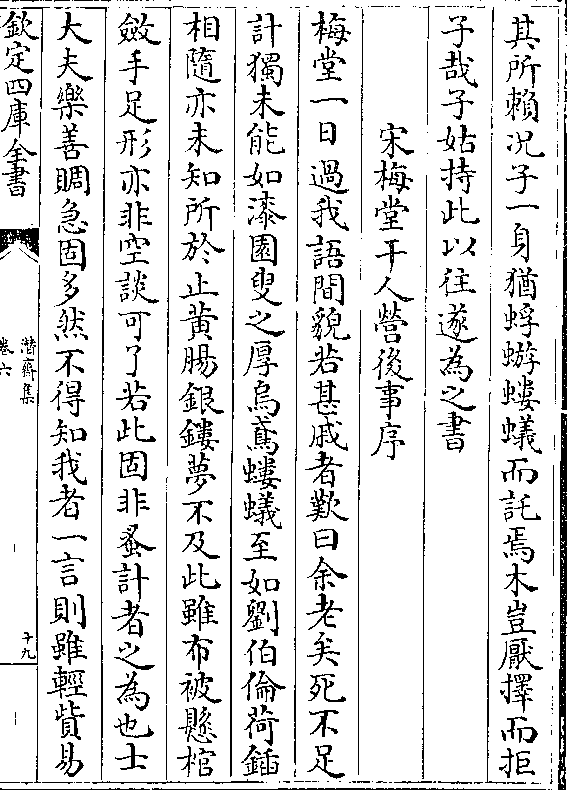 其所賴况子一身猶蜉蝣螻蟻而託焉木豈厭擇而拒
子哉子姑持此以往遂為之書
宋梅堂干人營後事序
梅堂一日過我語間貌若甚戚者歎曰余老矣死不足
計獨未能如漆園叟之厚烏鳶螻蟻至如劉伯倫荷鍤
相隨亦未知所於止黄腸銀鏤夢不及此雖布被懸棺
斂手足形亦非空談可了若此固非蚤計者之為也士
大夫樂善賙急固多然不得知我者一言則雖輕貲易
欽定四庫全書
潛齋集
卷六
十九